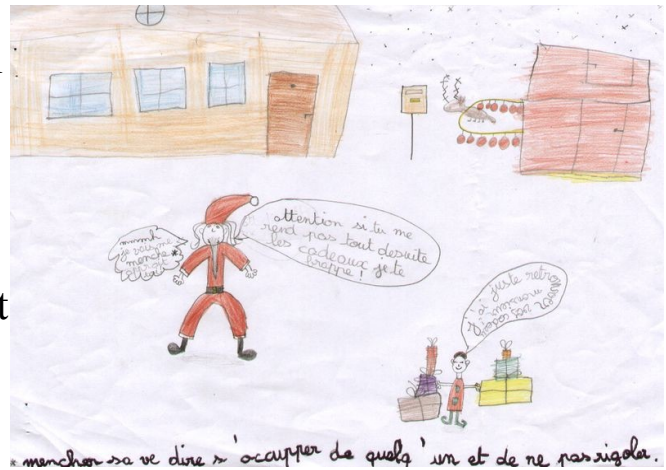 attention si tu me
rend pas tout desuite
les cadeaux je te
frappe !
mumh
je vais me
mencher*
j'ai juste retrouver
* mencher sa ve dire s'occupper de quelq'un et de ne pas rigoler.
t